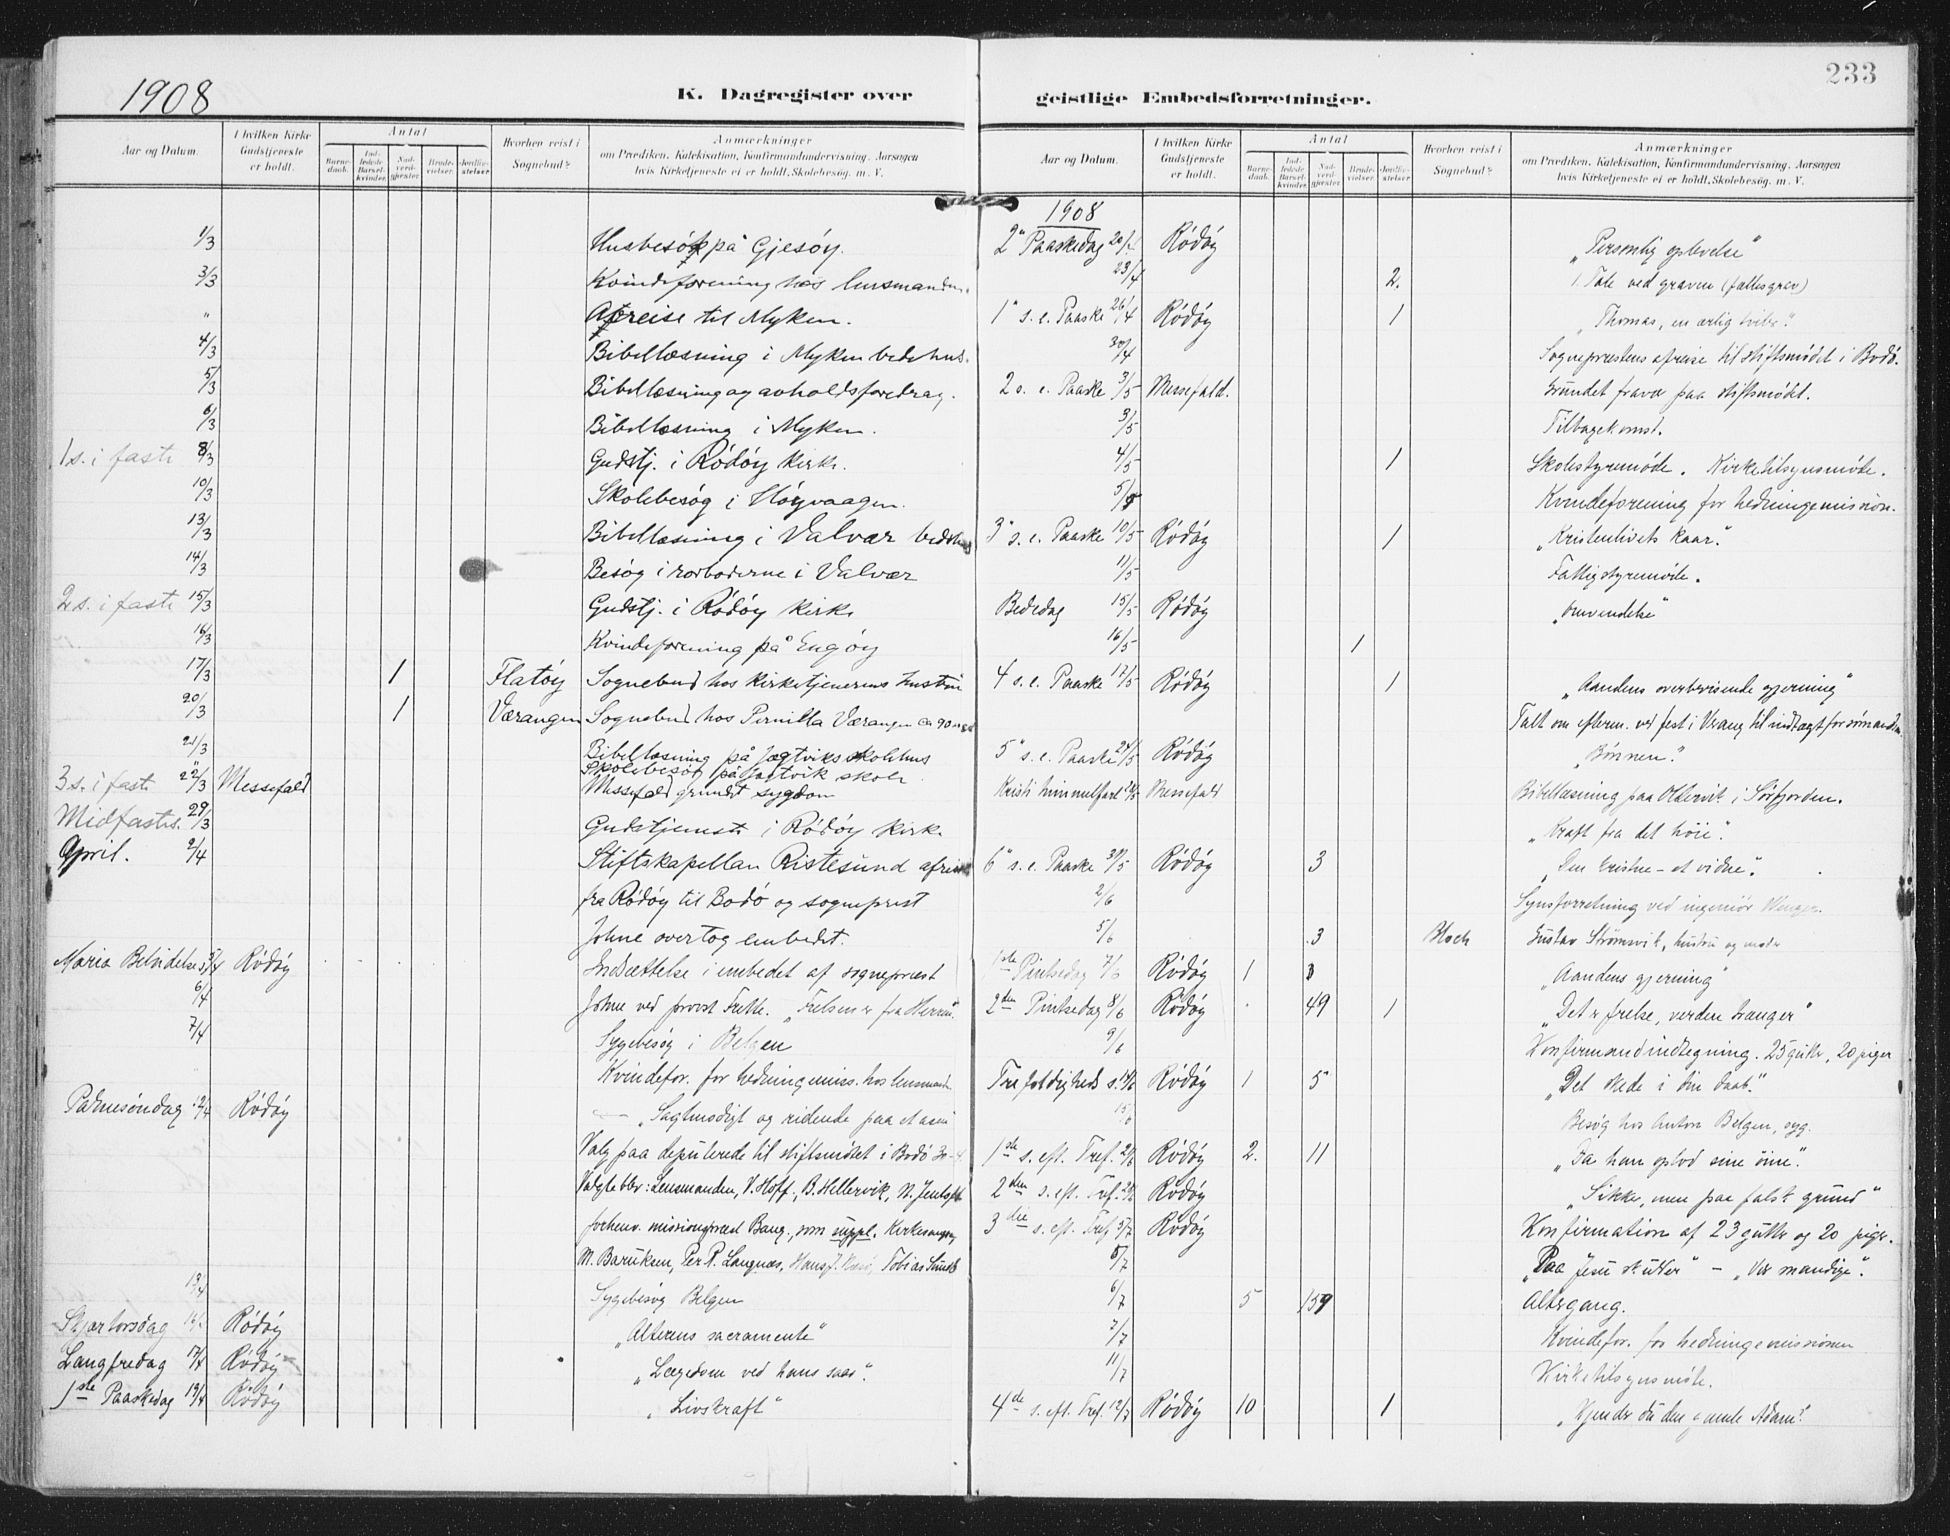 1908
K. Dagregister over
Aar og Datum.
I hvilken Kirke Gudstjeneste er holdt.
Antal
Barnedaab.
Indledede Barselkvinder.
Nadverdgjester
Brudevielser.
Jordfæstelser
Hvorhen reist i Sognebud?
Anmærkninger
om Prædiken. Katekisation, Konfirmandundervisning. Aarsagen
hvis Kirketjeneste ei er holdt, Skolebesøg. m. V.
1/3 Husbesøk på Gjesøy.
3/3 Kvindeforening hos lensmanden.
" Afreise til Myken.
4/3 Bibellæsning i Myken bedehus.
5/3 Bibellæsning og avholdsforedrag.
6/3 Bibellæsning i Myken.
1 s. i faste 8/3 Gudstj. i Rödöy kirke.
10/3 Skolebesøg i Høyvaagen.
13/3 Bibellæsning i Valvær bedehus
14/3 Besøg i rorboderne i Valvær
2 s. i faste 15/3 Gudstj. i Rödöy kirke
16/3 Kvindeforening på Engøy
17/3 1 Flatöy Sognebud hos kirketjenerens hustru
20/3 1 Værangen Sognebud hos Pernilla Værangen ca 90
21/3 Bibellæsning på Jægtviks skolehus
" Skolebesøg på Jægtvik skole
3 s. i faste 22/3 Messefald Messefald grundet sygdom
Midfastes. 29/3 Gudstjeneste i Rödöy kirke
April. 2/4 Stiftskapellan Ristesund afreise
fra Rödöy til Bodö og sogneprest
Johne overtog embedet.
Maria Bebudelse 5/4 Rödöy Indsættelse i embedet af sogneprest
6/4 Johne ved provst "Frelsen er fra Herren".
7/4 Sygebesög i Belgen
Kvindefor. for hedningemiss. hos lensmanden
Palmesöndag 12/4 Rödöy — "Sagtmodigt og ridende paa et asen
Valg paa deputerede til stiftsmötet i Bodö 30-4
Valgte blev: Lensmanden, V. Hoff, B. Hellervik, N.
forhenv. missionsprest Bang, som suppl. Kirkesanger
M. Baruksen, Per P. Langnæs, Tobias
13/4 Sygebesög Belgen
Skjærtorsdag 16/4 Rödöy "Alterens sacramente"
Langfredag 17/4 Rödöy "Lægedom ved hans saar".
1ste Paaskedag 19/4 Rödöy "Livskraft"
233
geistlige Embedsforretninger.
Aar og Datum.
I hvilken Kirke Gudstjeneste er holdt.
Antal
Barnedaab.
Indledede Barselkvinder.
Nadverdgjester
Brudevielser
Jordfæstelser
Hvorhen reist i Sognebud?
Anmærkninger
om Prædiken. Katekisation, Konfirmandundervisning. Aarsagen
hvis Kirketjeneste ei er holdt, Skolebesøg. m. V.
1908
2" Paaskedag 20/4 Rödöy "Personlig oplevelse"
23/4 2. 1. Tale ved graven (fællesgrav)
1" s. e. Paaske 26/4 Rödöy 1 "Thomas, en ærlig tviler".
30/4 Sogneprestens afreise til stiftsmödet i Bodö.
2 s. e. Paaske 3/5 Messefald. Grundet fravær paa stiftsmödet.
3/5 Tilbagekomst.
4/5 1 Skolestyremöde. Kirketilsynsmöte.
5/5 Kvindeforening for hedningemission.
3" s. e. Paaske 10/5 Rödöy 1 "Kristenlivets kaar".
11/5 Fattigstyremöde.
Bededag 15/5 Rödöy "Omvendelse"
16/5 1
4 s. e. Paaske 17/5 Rödöy 1 "Aandens overbevisende gjerning"
Talt om efterm. ved fest i Vrang til indtægt for sömandsm.
5" s. e. Paaske 24/5 Rödöy "Bönnen".
Kristi himmelfart 28/5 Messefald Bibellæsning paa Oldervik i Sörfjorden.
"Kraft fra det höie".
6" s. e. Paaske 31/5 Rödöy 3 "Den kristne – et vidne".
2/6 Synsforretning ved ingeniör
5/6 3 Gustav Strömsvik, hustru og moder
1ste Pintsedag 7/6 Rödöy 1 3 "Aandens gjerning"
2den Pintsedag 8/6 Rödöy 49 1 "Det er frelse, verden trænger"
9/6 Konfirmandindtegning. 25 gutter, 20 piger
Trefoldigheds s. 14/6 Rödöy 1 5 "Det skede i din daab".
15/6 Besög hos Anton Belgen, syg.
1ste s. eft. Tref. 21/6 Rödöy 2. 11 "Da han oplod sine öine".
2den s. eft. Tref. 28/6 Rödöy "Sikker, men paa falsk grund"
3die s. eft. Tref. 5/7 Rödöy Konfirmation af 23 gutter og 20 piger.
5/7 "Paa Jesu skulder" – "Vær mandige".
6/7 5 159 Altergang.
7/7 Kvindefor. for hedningemissionen
11/7 Kirketilsynsmöte.
4de s. eft. Tref. 12/7 Rödöy 10 1 "Kjender du den gamle Adam?"